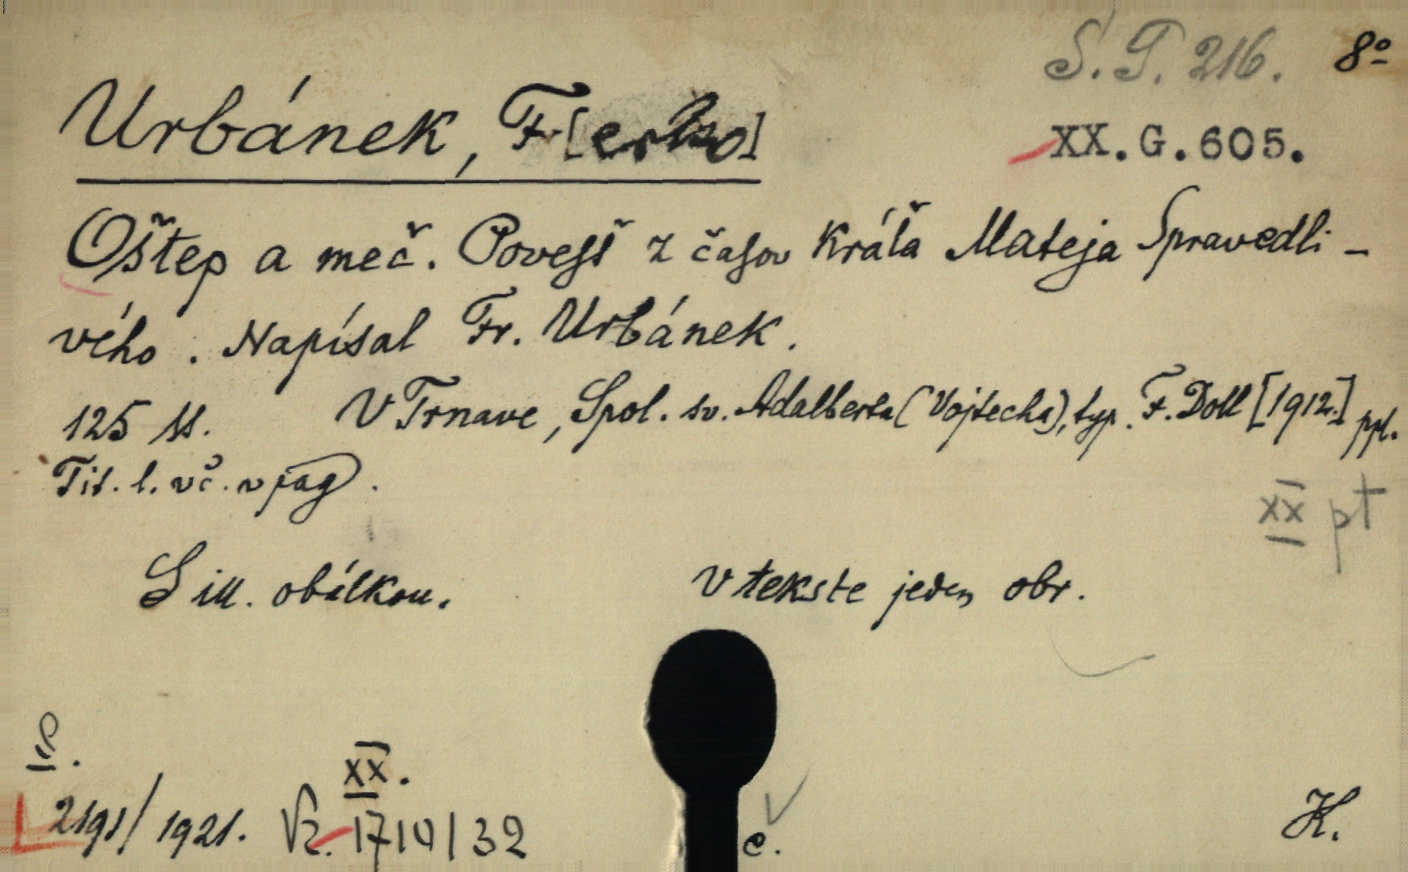 S. T. 216. 8º
Urbánek, Fr[erko]
XX.G.605.
Oštep a meč. Povesť z časov kráľa Mateja Spravedli-
vého. Napísal Fr. Urbánek.
125 ss. V Trnave, Spol. sv. Adalberta (Vojtecha), typ. F. Doll [1912.] ppl.
Tit. l. vč. v pag.
XX pt
S ill. obálkou. V tekste jeden obr.
XX.
2191/1921. 1710/32
c.
H.